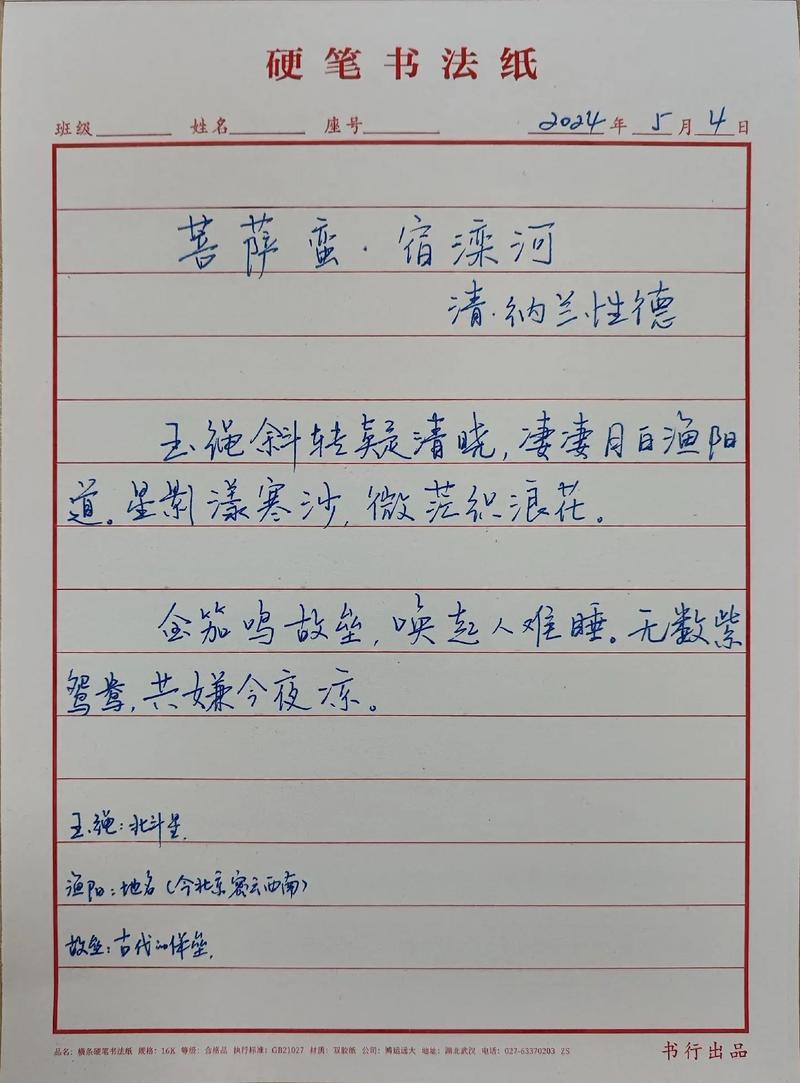 硬笔书法纸
班级 姓名 座号 2024年5月4日
菩萨蛮·宿滦河
清·纳兰性德
玉绳斜转疑清晓,凄凄月白渔阳
道。星影漾寒沙,微茫织浪花。
金笳鸣故垒,唤起人难睡。无数紫
鸳鸯,共嫌今夜凉。
玉绳:北斗星.
渔阳:地名(今北京密云西南)
故垒:古代的垒.
品名:横条硬笔书法纸 规格:16K 等级:合格品 执行标准:GB21027 材质:双胶纸 公司:鸿运远大 地址:湖北武汉 电话:027-63370203 ZS
书行出品